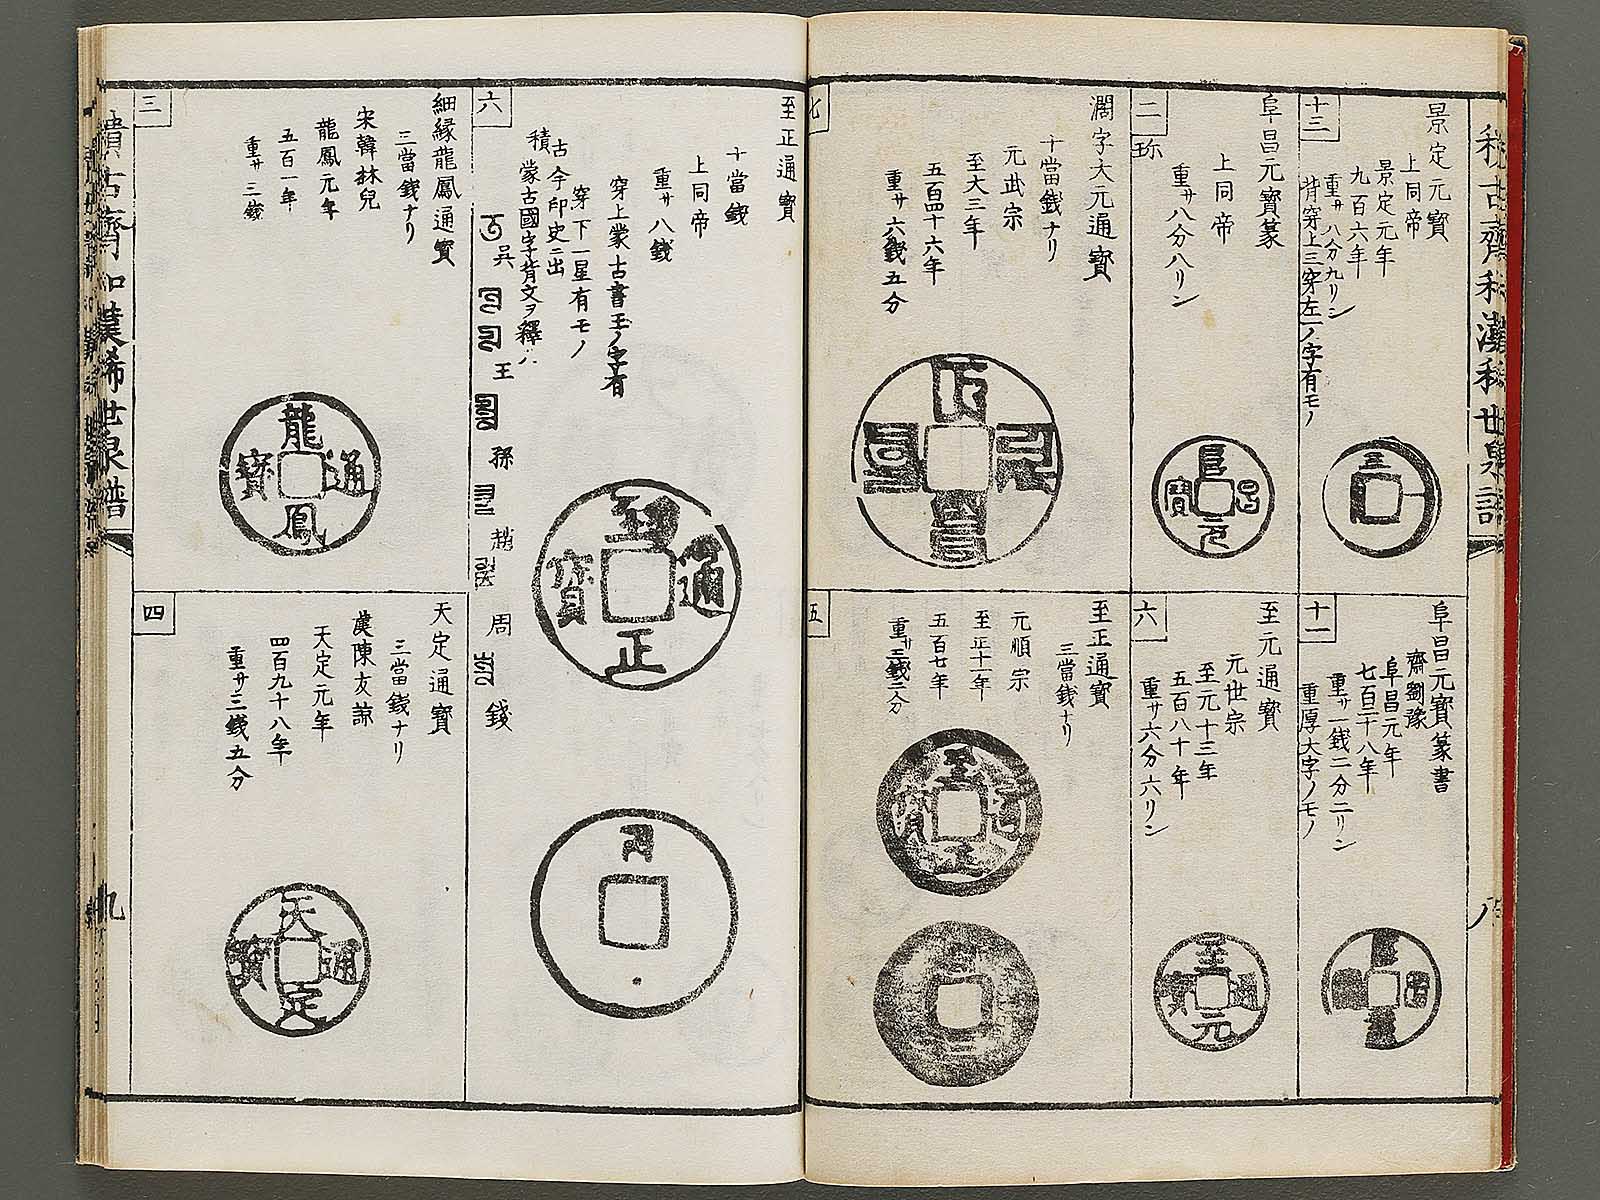 十三
景定元寳
上同帝
景定元年
九百六年
重サ八分九リン
背穿上三穿左一ノ字有モノ
三
二
珎
阜昌元寳篆
上同帝
重サ八分八リン
阜昌元寳
七
濶字大元通寳
十當銭ナリ
元武宗
至大三年
五百四十六年
重サ六銭五分
十一
阜昌元寳篆書
齋劉豫
阜昌元年
七百二十八年
重サ一銭二分二リン
重厚大字ノモノ
六
至元通寳
元世宗
至元十三年
五百八十年
重サ六分六リン
至元通寳
五
至正通寳
三當銭ナリ
元順宗
至正十一年
五百七年
重サ三銭三分
至正通寳
稀世泉譜
八
至正通寳
十當銭
上同帝
重サ八銭
穿上蒙古書王ノ字有
穿下一星有モノ
古今印史ニ出
積
蒙古國字背文ヲ釋ス
吳
王
孫
趙
周
錢
至正通寳
六
細縁龍鳳通寳
三當銭ナリ
宋韓林兒
龍鳳元年
五百一年
重サ三銭
龍鳳通寳
三
天定通寳
三當銭ナリ
漢陳友諒
天定元年
四百九十八年
重サ三銭五分
天定通寳
四
積古齋和漢稀世泉譜
九